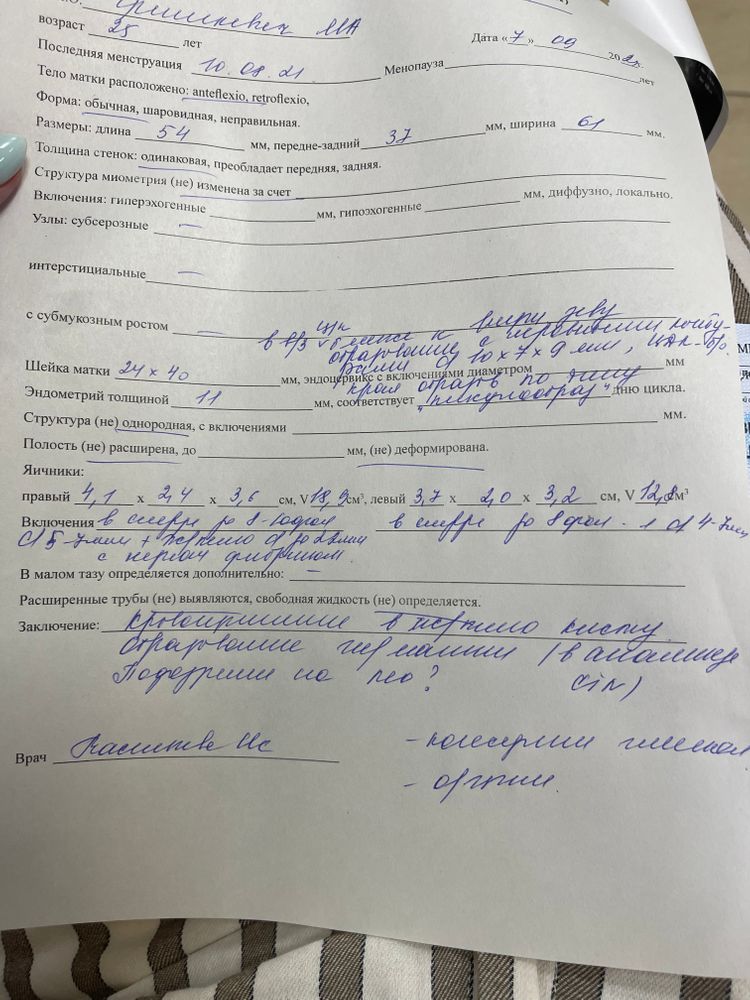 МА
возраст 25 лет
Дата «7» 09 20 г.
Последняя менструация 10.08.21 Менопауза лет
Тело матки расположено: anteflexio, retroflexio,
Форма: обычная, шаровидная, неправильная.
Размеры: длина 54 мм, передне-задний 37 мм, ширина 61 мм.
Толщина стенок: одинаковая, преобладает передняя, задняя.
Структура миометрия (не) изменена за счет
Включения: гиперэхогенные мм, гипоэхогенные мм, диффузно, локально.
Узлы: субсерозные —
интерстициальные —
с субмукозным ростом —
ц/к
в в/3 ближе к внутр зеву
образование с неровными конту-
рами d 10 х 7 х 9 мм,
Шейка матки 24 х 40 мм, эндоцервикс с включениями диаметром мм
кров образов по типу
Эндометрий толщиной 11 мм, соответствует дню цикла.
Структура (не) однородная, с включениями мм.
Полость (не) расширена, до мм, (не) деформирована.
Яичники:
правый 4,1 х 2,4 х 3,6 см, V 18,9 см³, левый 3,7 х 2,0 х 3,2 см, V 12,8 см³
Включения в с до 8 в с до 8 фол. d 4-7мм
d 5-7мм + до 22мм
с фибрином.
В малом тазу определяется дополнительно: —
Расширенные трубы (не) выявляются, свободная жидкость (не) определяется.
Заключение: Кровоизлияние в кисту.
Образование (в анамнезе
Подозрение на neo? Cin)
Врач